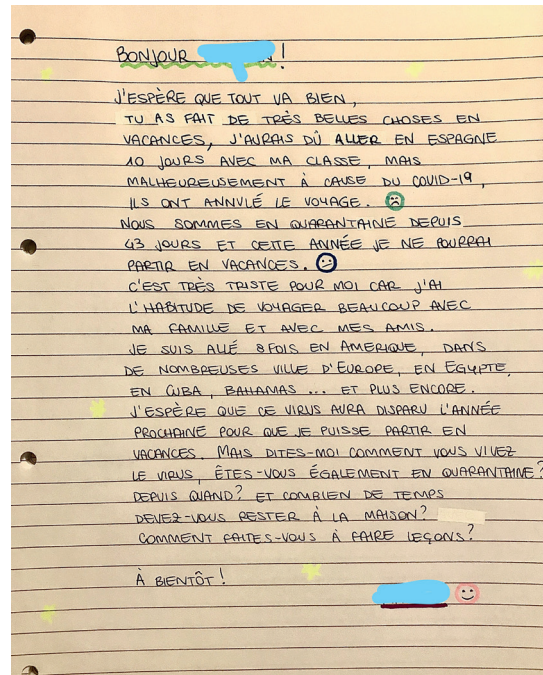 BONJOUR !
J'ESPÈRE QUE TOUT VA BIEN,
TU AS FAIT DE TRÈS BELLES CHOSES EN
VACANCES, J'AURAIS DÛ ALLER EN ESPAGNE
10 JOURS AVEC MA CLASSE, MAIS
MALHEUREUSEMENT À CAUSE DU COVID-19,
ILS ONT ANNULÉ LE VOYAGE.
NOUS SOMMES EN QUARANTAINE DEPUIS
43 JOURS ET CETTE ANNÉE JE NE POURRAI
PARTIR EN VACANCES.
C'EST TRÈS TRISTE POUR MOI CAR J'AI
L'HABITUDE DE VOYAGER BEAUCOUP AVEC
MA FAMILLE ET AVEC MES AMIS.
JE SUIS ALLÉ 8 FOIS EN AMERIQUE, DANS
DE NOMBREUSES VILLE D'EUROPE, EN EGYPTE,
EN CUBA, BAHAMAS ... ET PLUS ENCORE.
J'ESPÈRE QUE CE VIRUS AURA DISPARU L'ANNÉE
PROCHAINE POUR QUE JE PUISSE PARTIR EN
VACANCES. MAIS DITES-MOI COMMENT VOUS VIVEZ
LE VIRUS, ÊTES-VOUS ÉGALEMENT EN QUARANTAINE?
DEPUIS QUAND? ET COMBIEN DE TEMPS
DEVEZ-VOUS RESTER À LA MAISON?
COMMENT FAITES-VOUS À FAIRE LEÇONS?
À BIENTÔT!